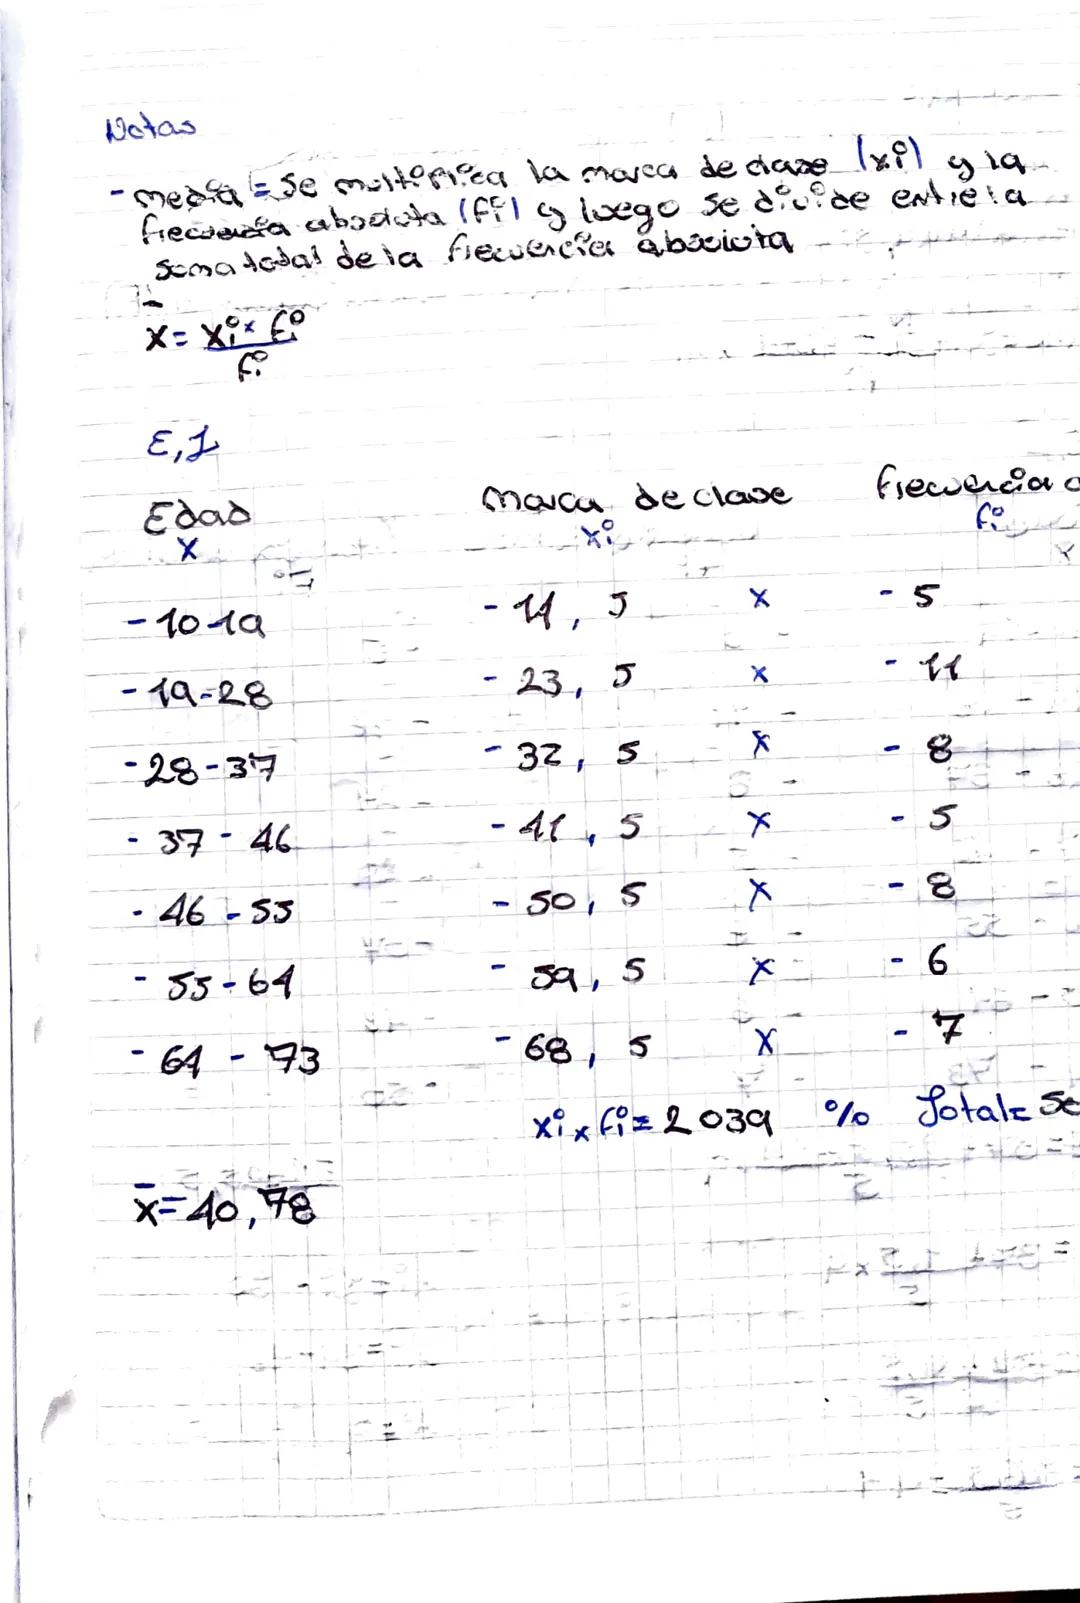 Notas
- media = Se multiplica la marca de clase (xi) y la
frecuencia absoluta (fi) y luego se divide entre la
suma total de la frecuencia absoluta
x̄ = xi x fi
fi
E,J
Edad Marca de clase frecuencia a
x xi fi
- 10-19 - 14,5 x - 5
- 19-28 - 23,5 x - 11
- 28-37 - 32,5 x - 8
- 37-46 - 41,5 x - 5
- 46-55 - 50,5 x - 8
- 55-64 - 59,5 x - 6
- 64-73 - 68,5 x - 7
xi x fi = 2039 % Total= 50
x̄ = 40,78